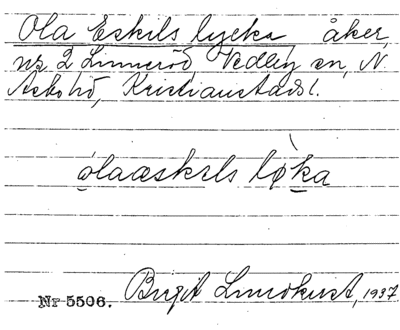 Ola Eskils lycka åker,
nr 2 Linneröd, Vedby sn, N.
Åsbohd, Kristianstads l.
ólaæskɩls lø̀ka
Nr 5506. Birgit Lundkvist, 1937